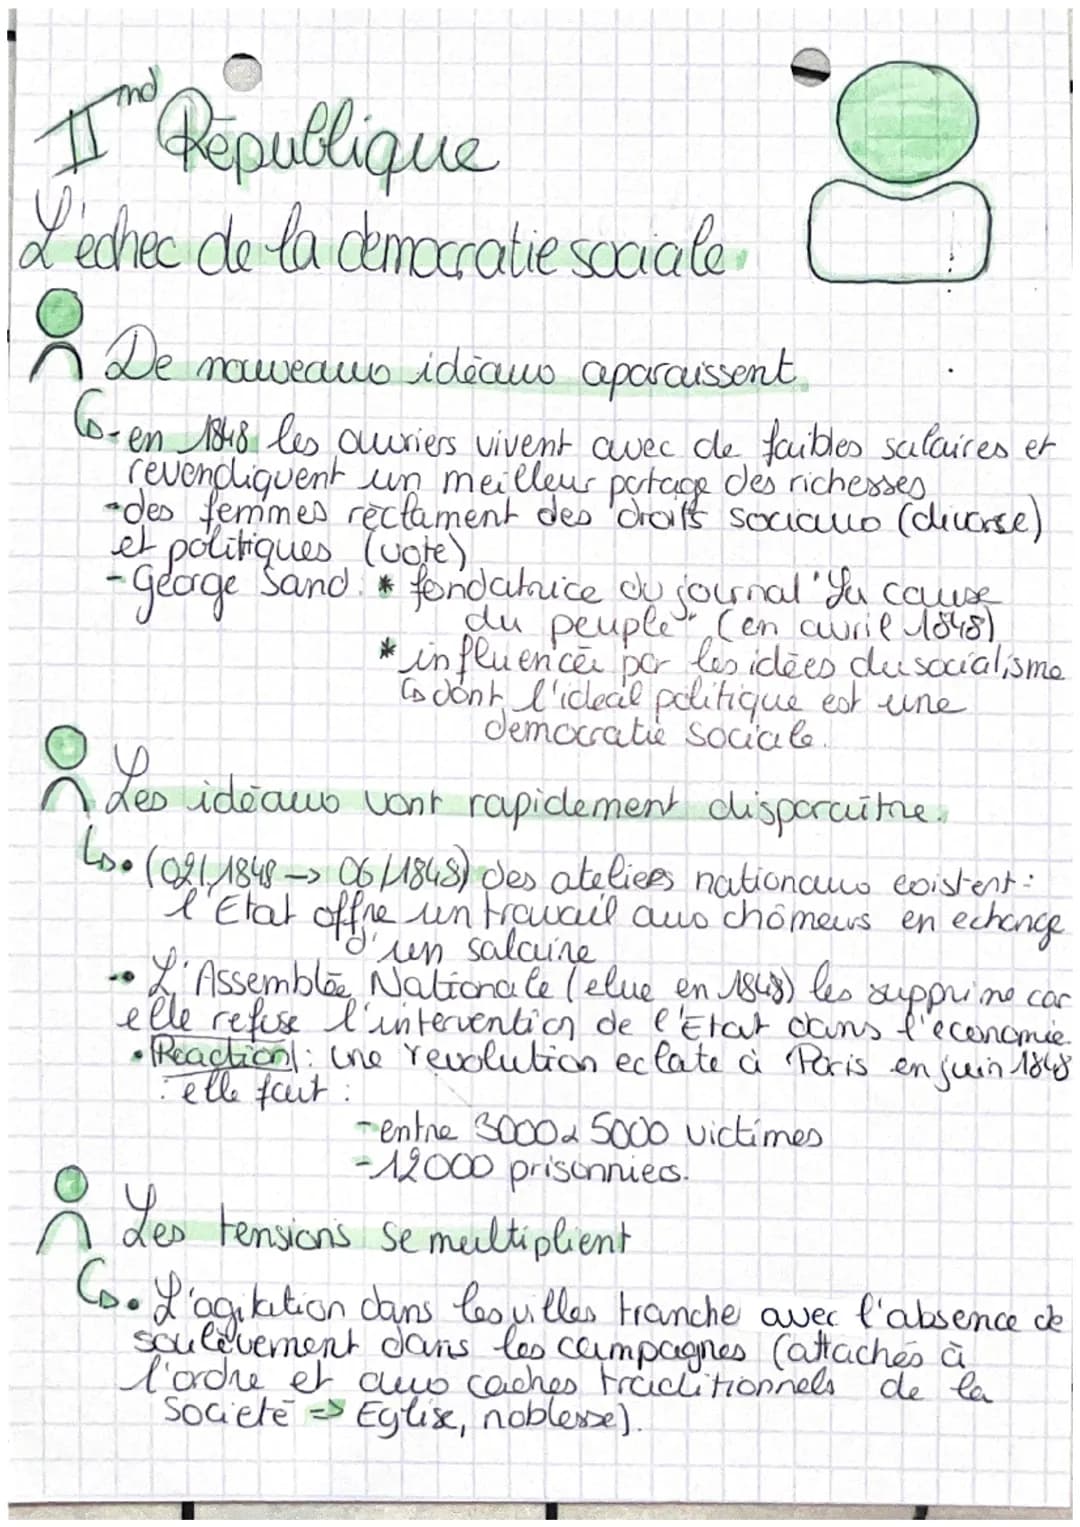 IInd République
L'échec de la democratie sociale.
De nouveaux idéaux aparaissent.
-en 1848 les ouvriers vivent avec de faibles salaires et
revendiquent un meilleur partage des richesses
-des femmes réclament des droits sociaux (divorse)
et politiques (vote)
-George Sand: * fondatrice du journal "La cause
du peuple" (en avril 1848)
* influencée par les idées du socialisme
dont l'ideal politique est une
democratie sociale.
Les idéaux vont rapidement disparaître.
• (02/1848 -> 06/1848) des ateliers nationaux existent:
l'Etat offre un travail aux chômeurs en echange
d'un salaire
• L'Assemblée Nationale (elue en 1848) les supprime car
elle refuse l'intervention de l'Etat dans l'economie.
• Reaction : une revolution eclate à Paris en juin 1848
: elle fait :
-entre 3000 à 5000 victimes
-12000 prisonniers.
Les tensions se multiplient
• L'agitation dans les villes tranche avec l'absence de
soulèvement dans les campagnes (attachés à
l'ordre et aux cadres traditionnels de la
Societé => Eglise, noblesse).